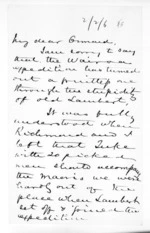 My dear Ormond,
I am sorry to say
that the Wairoa
expedition has turned
out a fruitless one
through the stupidity
of old Lambert.
It was fully
understood when
Richmond and I
left that
with 20 picked
men should accompany
the Maoris we were
hardly out of the
place when Lambert
set off & joined the
expedition